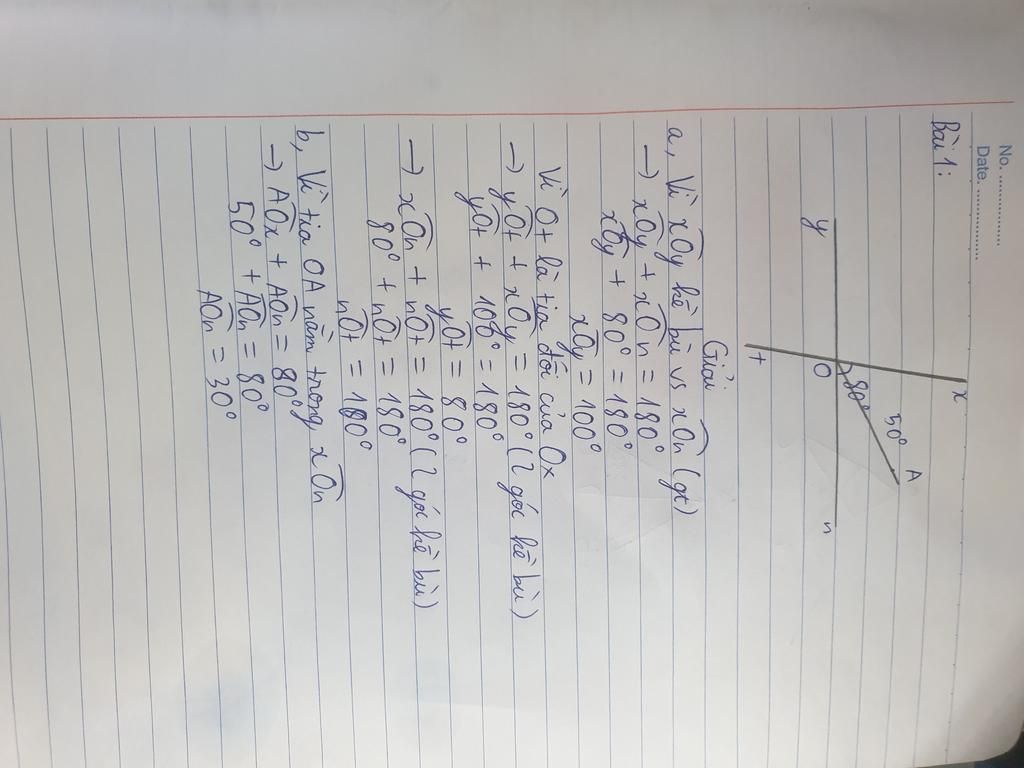 No. ....................
Date. ....................
Bài 1:
x
50°
A
80°
y
O
n
t
Giải
a, Vì xOy kề bù vs xOn (gt)
→ xOy + xOn = 180°
xOy + 80° = 180°
xOy = 100°
Vì Ot là tia đối của Ox
→ yOt + xOy = 180° (2 góc kề bù)
yOt + 100° = 180°
yOt = 80°
→ xOn + nOt = 180° (2 góc kề bù)
80° + nOt = 180°
nOt = 100°
b, Vì tia OA nằm trong xOn
→ AOx + AOn = 80°
50° + AOn = 80°
AOn = 30°